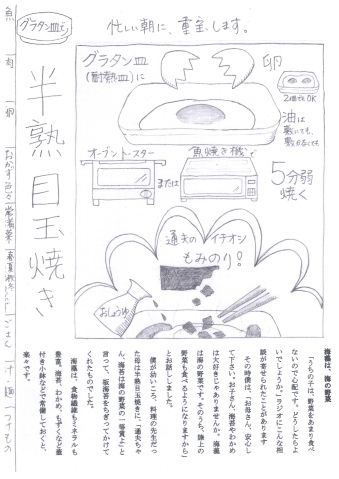 グラタン皿で
半熟目玉焼き
忙しい朝に、重宝します。
グラタン皿
(耐熱皿)に
卵
2個でもOK
油は
敷いても、
敷かなくても
オーブントースター
または
魚焼き機で
5分弱
焼く
道夫のイチオシ
もみのり!
おしょうゆ
海藻は、海の野菜
「うちの子は、野菜をあまり食べ
ないので心配です。どうしたらよ
いでしょうか」ラジオにこんな相
談が寄せられたことがあります
その時僕は、「お母さん、安心し
て下さい。お子さん、海苔やわかめ
は大好きじゃありませんか。海藻
は海の野菜です。そのうち、陸上の
野菜も食べるようになりますから」
とお話ししました。
僕が幼いころ、料理の先生だっ
た母は半熟目玉焼きに「道夫ちゃ
ん、海苔は海の野菜の一等賞よ」と
言って、板海苔をちぎってかけて
くれたものでした。
海藻は、食物繊維もミネラルも
豊富。海苔、わかめ、もずくなど蓋
付き小鉢などで常備しておくと、
楽々です。
魚
肉
卵
おかず色々
常備菜
ごはん
汁・麺